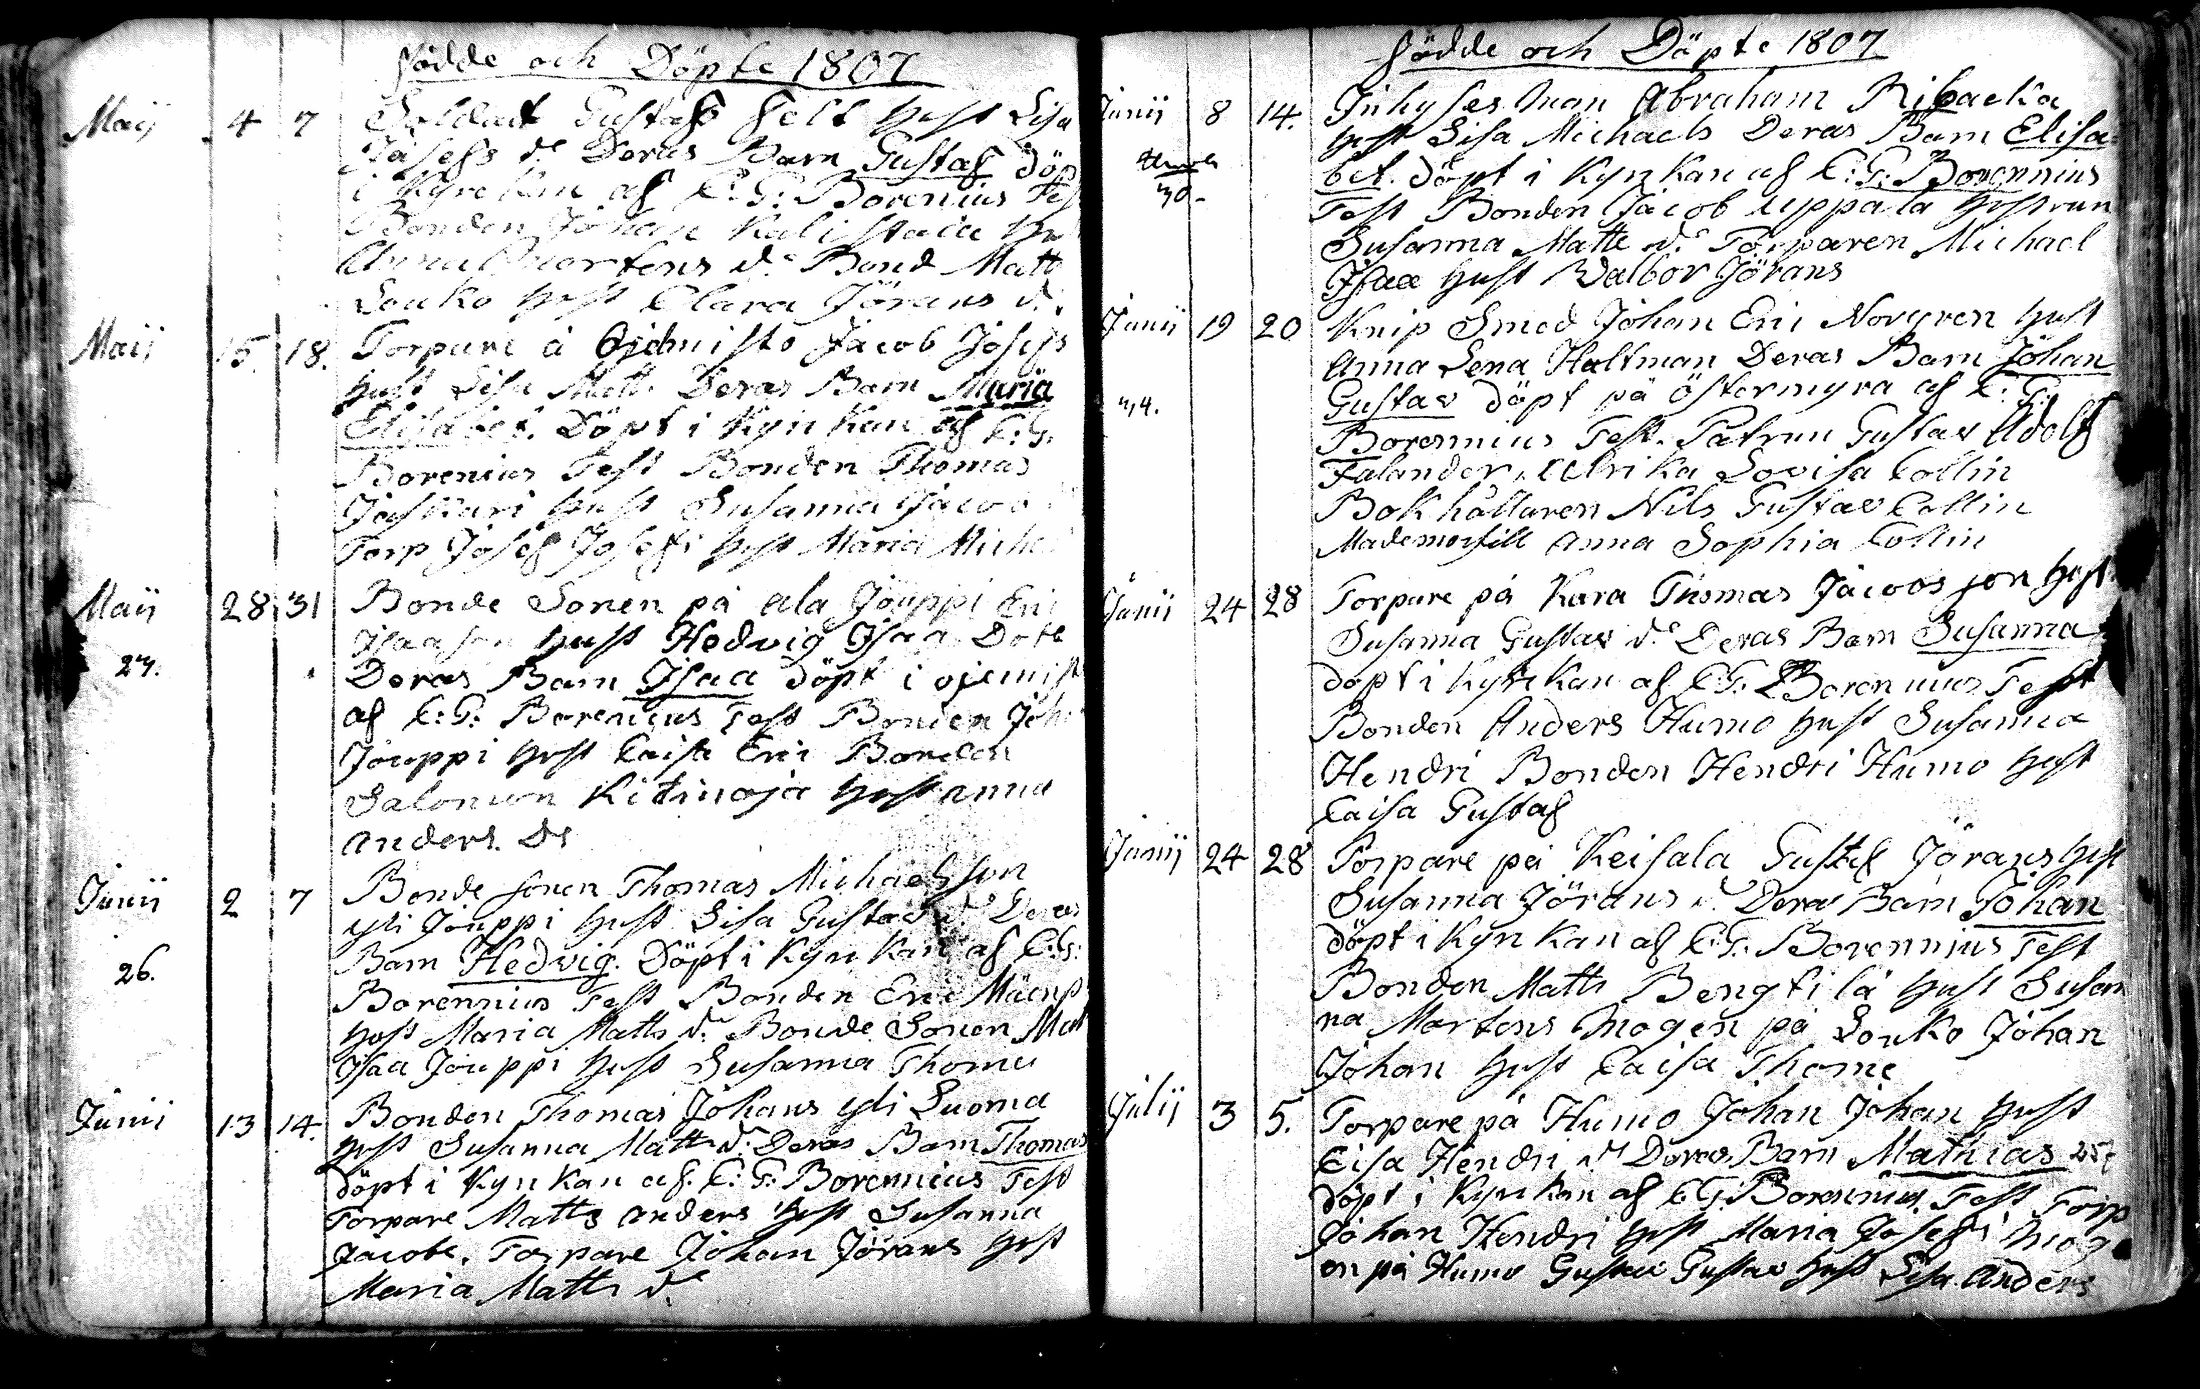 födde och Döpte 1807
Maij 4 7 Soldat Gustaf felt hust Lisa
Josefs dr Deras Barn Gustaf döp
i Kyrckan af C: G: Borenius Test
Bonden Johan Kalistaia hu
Anna Mortens dr Bond Matt
Louko hust Clara Jörans d.
Maij 15. 18. Torpare å Ojemisto Jacob Josefs
hust Lisa Matts Deras Barn Maria
Elisabet. Döpt i Kyrkan af C: G.
Borenius Test Bonden Thomas
Jaskari hust Susanna Jacob
Torp Josef Josefs hust Maria Mich
Maij 28 31 Bonde Sonen på ala Jouppi Eric
Isaa son hust Hedvig Isaa Dote
27. Deras Barn Isaa döpt i ojemist
af C: G: Borenius Test Bonden Joh
Jouppi hust Caisa Eric Bonden
Salomon Kitinoja hust anna
anders Dr
Junij 2 7 Bonde sonen Thomas Michaelsson
yli Jouppi hust Lisa Gustavs dr Deras
26. Barn Hedvig. Döpt i Kyrkan af C: G:
Borennius Test Bonden Eric Mäenp
hust Maria Matts dr Bonde Sonen Mat
Isaa Jouppi hust Susanna Thoma
Junij 13 14. Bonden Thomas Johans yli Luoma
hust Susanna Matts dr Deras Barn Thomas
döpt i Kyrkan af. C: G: Borennius Test
Torpare Matts anders hust Susanna
Jacobs. Torpare Johan Jörans hust
Maria Matts dr
födde och Döpte 1807
Junij 8 14. Inhyses man Abraham Ribacka
hust Lisa Michaels Deras Barn Elisa
bet. döpt i Kyrkan af C: G: Borennius
30. Test Bonden Jacob uppala hustrun
Susanna Matts dr Torparen Michael
Isaa hust Walbor Jörans
Junij 19 20 Knip Smed Johan Eric Norgren hust
Anna Lena Holtman Deras Barn Johan
Gustav döpt på östermyra af C. G:
Borennius Test. Patrun Gustav Adolf
Falander, Ulrika Lovisa Collin
Bokhållaren Nils Gustav Collin
Mademoisill Anna Sophia Collin
Junij 24 28 Torpare på Kara Thomas Jacobs son hust
Susanna Gustav dr Deras Barn Susanna
döpt i Kyrkan af C: G: Borennius Test
Bonden Anders Humo hust Susanna
Hendri Bonden Hendri Humo hust
Caisa Gustaf
Junij 24 28 Torpare på Keisala Gustaf Jörans hust
Susanna Jörans d. Deras Barn Johan
döpt i Kyrkan af C: G: Borennius Test
Bonden Matts Bengtilä hust Susan
na Martens Mogen på Louko Johan
Johan hust Caisa Thome
Julij 3 5. Torpare på Humo Johan Johan hust
Cisa Hendri dr Deras Barn Mathias 25
döpt i Kyrkan af C: G: Borennius Test Torp
Johan Hendri hust Maria Josefs Mog
en på Humo Gustav Gustav hust Lisa Anders